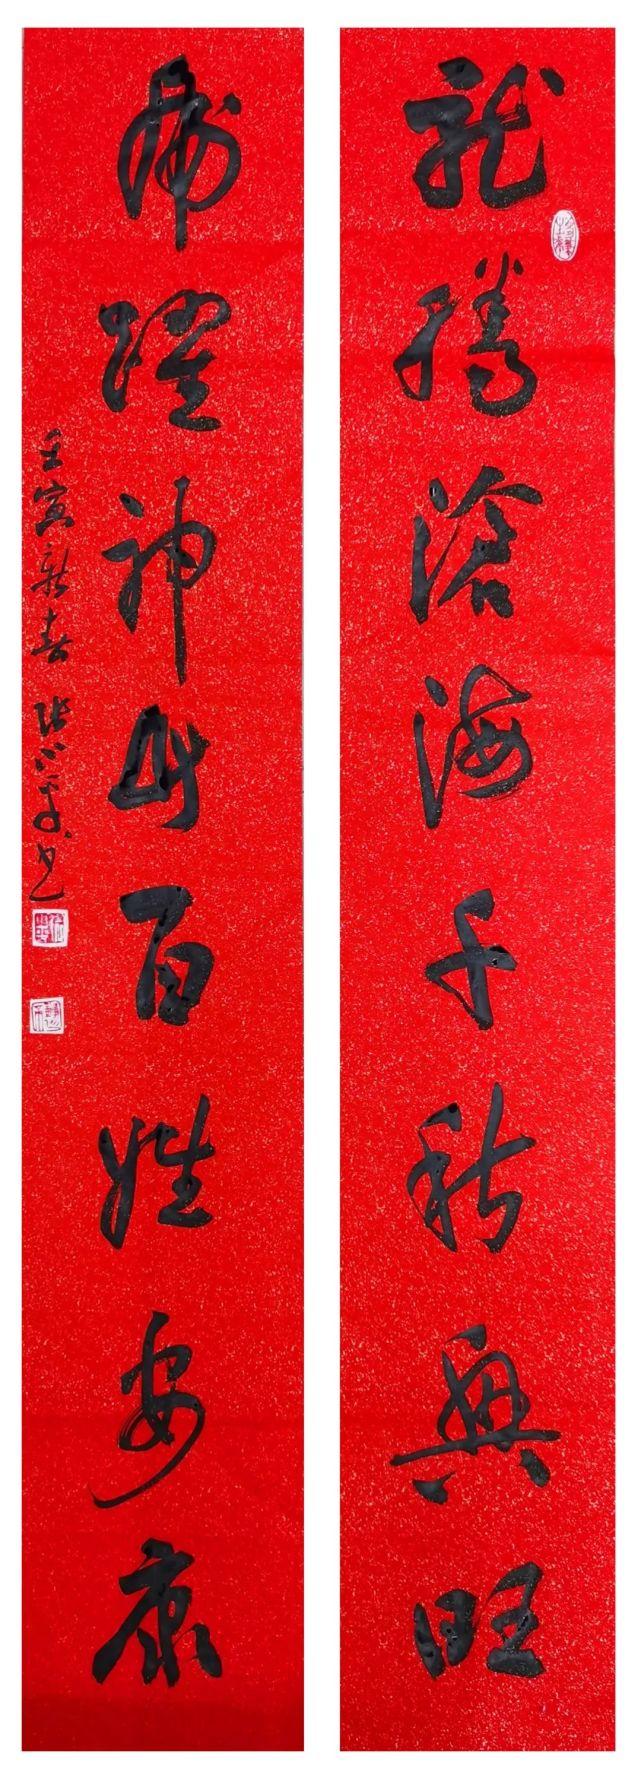 龍騰滄海千秋興旺
虎躍神州百姓安康
壬寅新春 張